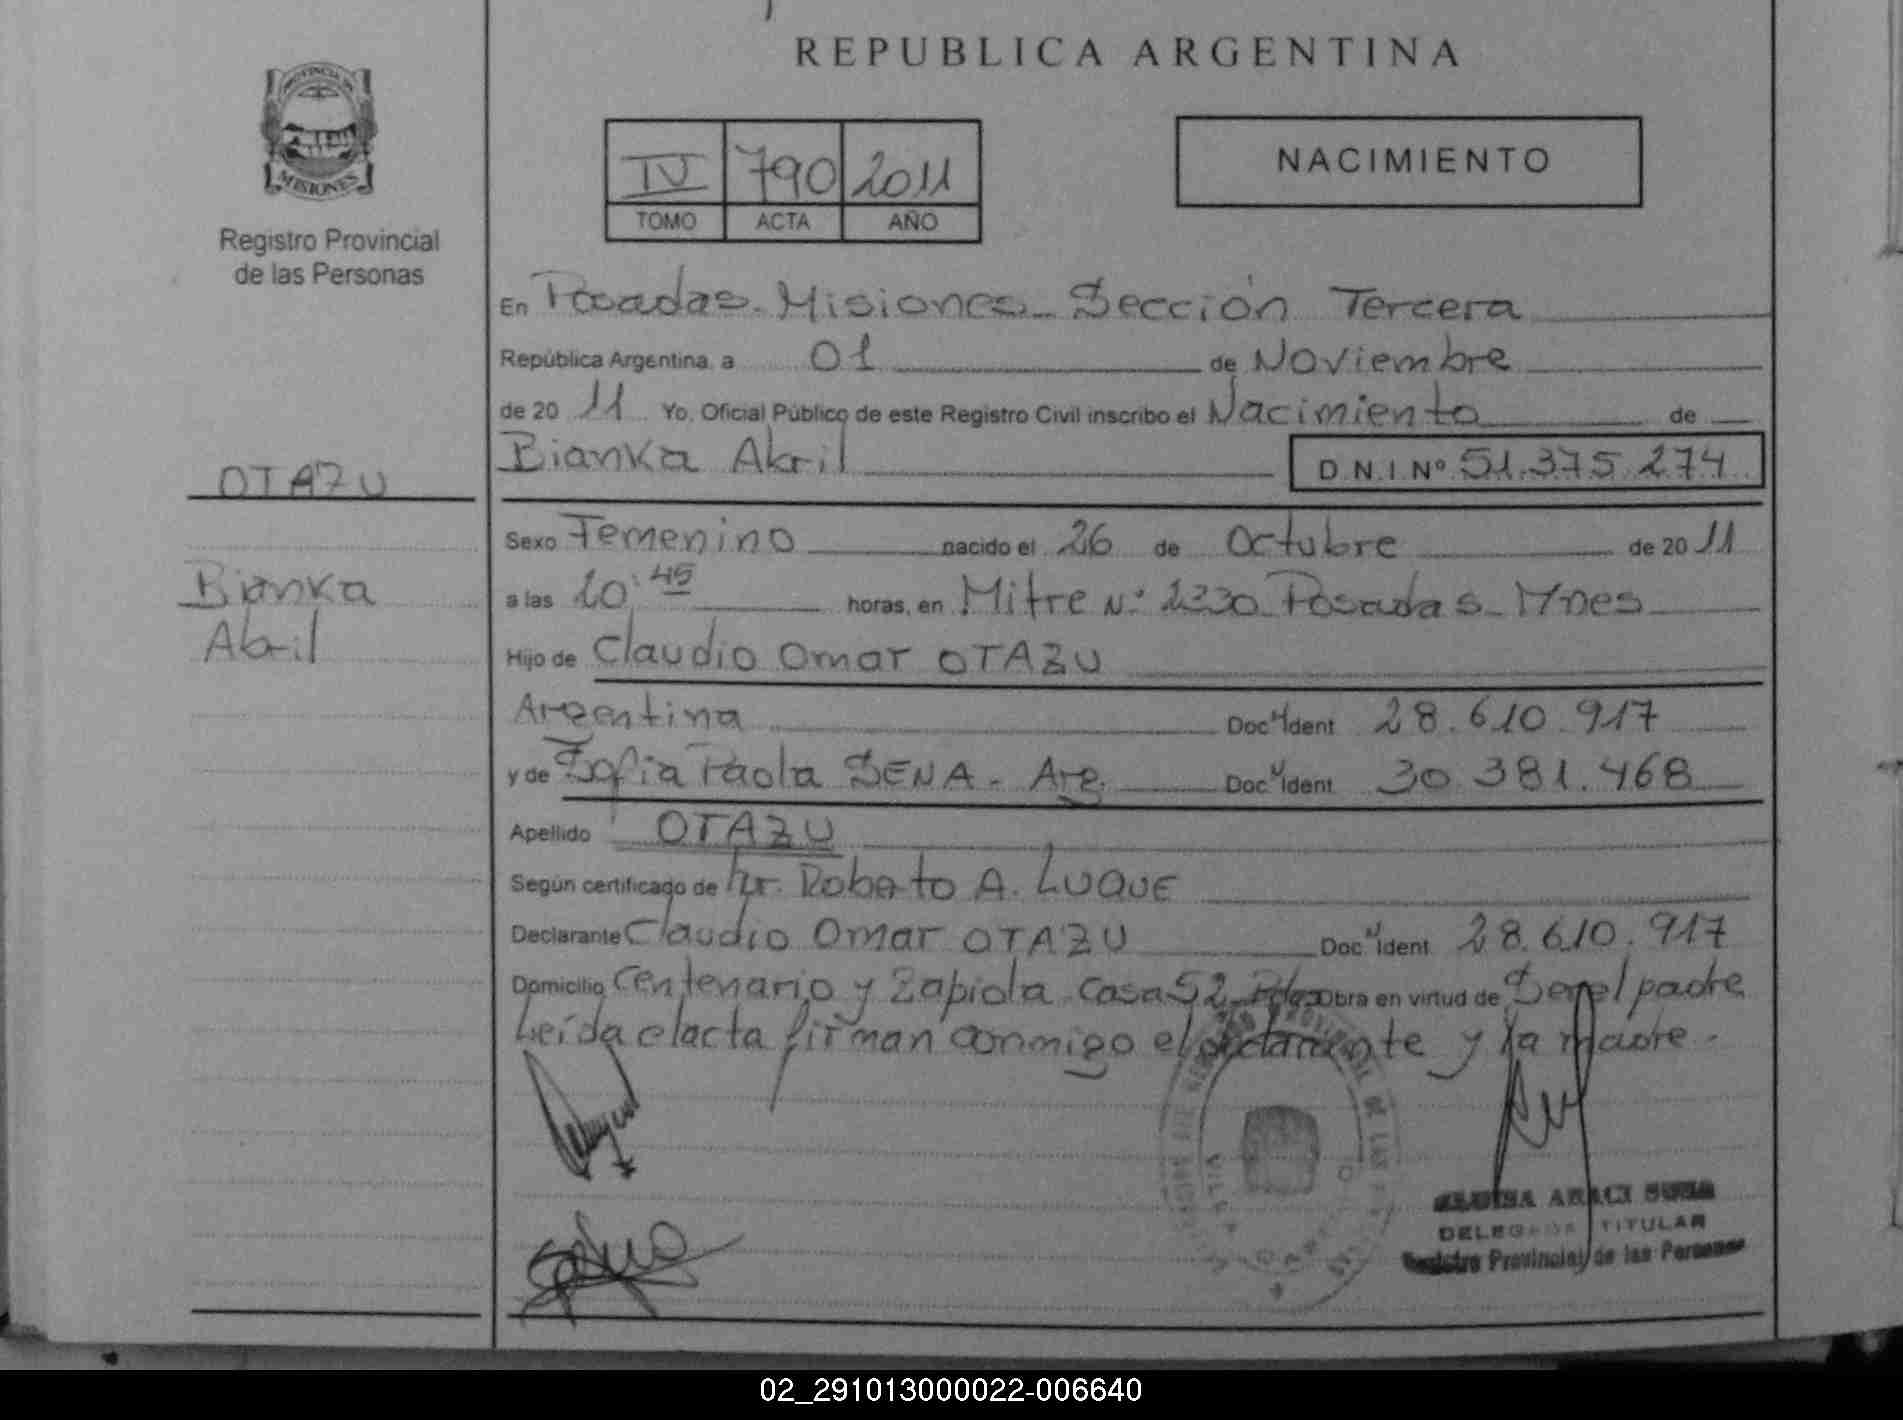 REPUBLICA ARGENTINA
PROVINCIA DE
MISIONES
Registro Provincial
de las Personas
IV 790 2011
TOMO ACTA AÑO
NACIMIENTO
En Posadas - Misiones - Sección Tercera
República Argentina, a 01 de Noviembre
de 20 11 Yo, Oficial Público de este Registro Civil inscribo el Nacimiento de
Bianka Abril D.N.I. Nº 51.375.274
OTAZU
Bianka
Abril
Sexo Femenino nacido el 26 de Octubre de 20 11
a las 20:45 horas, en Mitre Nº 2230 Posadas - Mnes
Hijo de Claudio Omar OTAZU
Argentina Doc. Ident. 28.610.917
y de Sofia Paola SENA - Arg. Doc. Ident. 30.381.468
Apellido OTAZU
Según certificado de Dr. Roberto A. LUQUE
Declarante Claudio Omar OTAZU Doc. Ident. 28.610.917
Domicilio Centenario y Zapiola Casa 52 Obra en virtud de Ser el padre
Leída el acta firman conmigo el declarante y la madre.
ARACI
DELEGADA TITULAR
Registro Provincial de las Personas
02_291013000022-006640